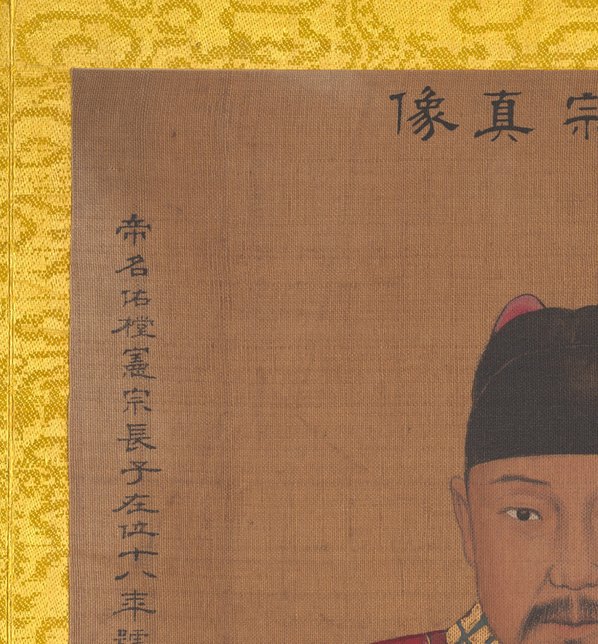 宗真像
帝名佑樘憲宗長子在位十八年號